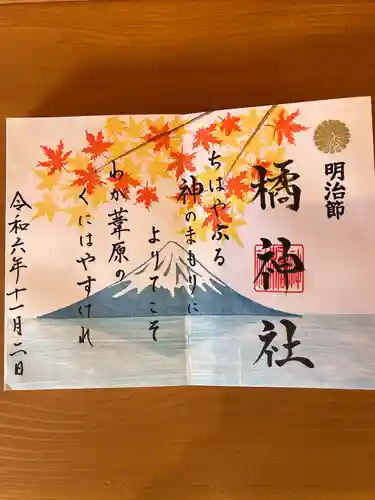 明治節
橘神社
ちはやふる
神のまもりに
よりてこそ
わか葦原の
くにはやすけれ
令和六年十一月二日